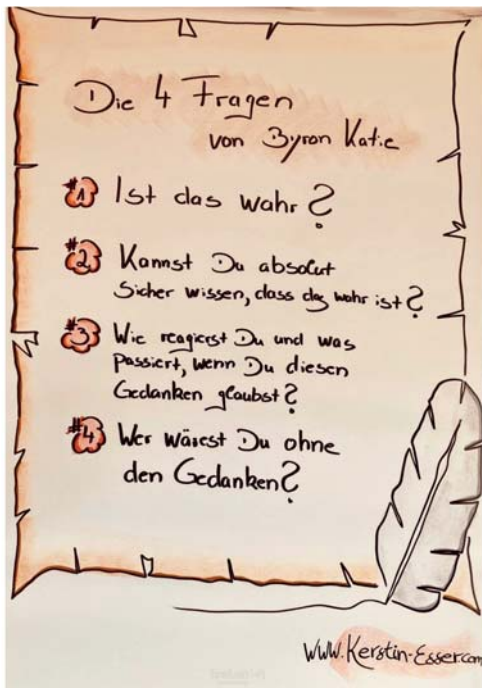 Die 4 Fragen
von Byron Katie
#1 Ist das wahr?
#2 Kannst Du absolut
Sicher wissen, dass das wahr ist?
#3 Wie reagierst Du und was
Passiert, wenn Du diesen
Gedanken glaubst?
#4 Wer wärest Du ohne
den Gedanken?
www.Kerstin-Esser.com